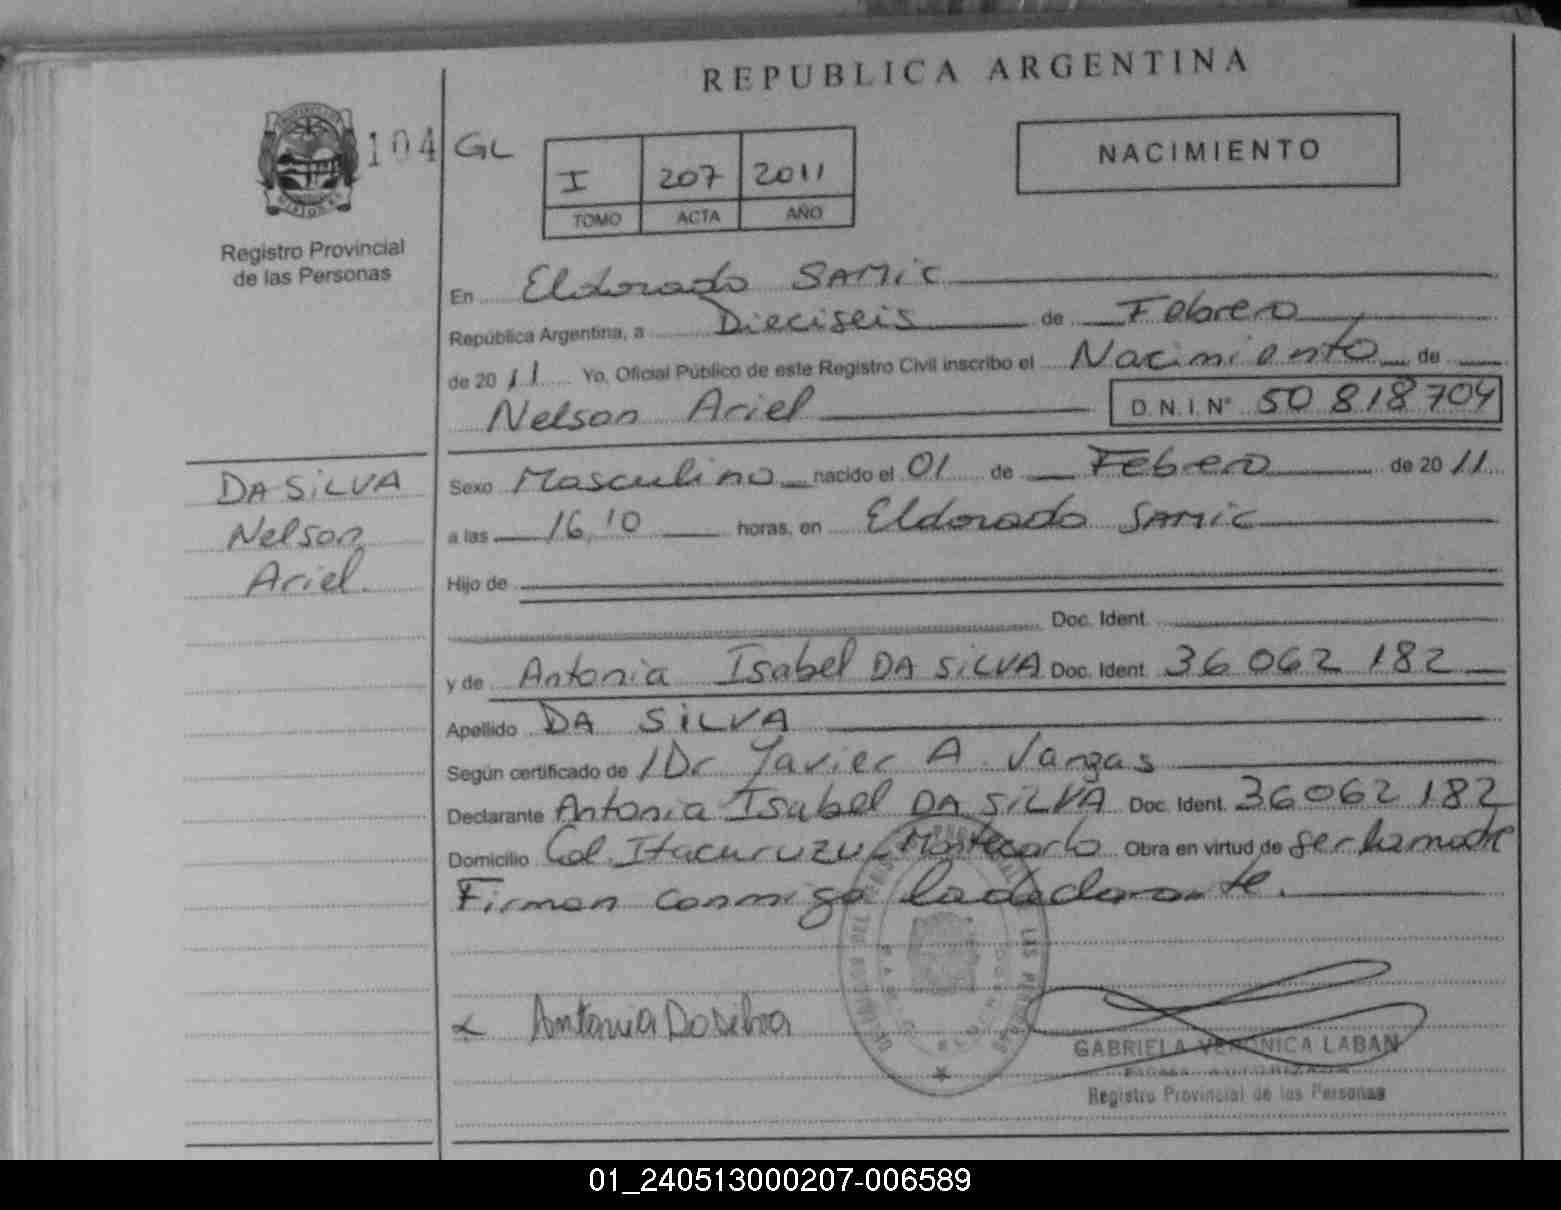 REPUBLICA ARGENTINA
104 GL
I 207 2011
TOMO ACTA AÑO
NACIMIENTO
MISIONES
Registro Provincial
de las Personas
En Eldorado SAMIC
República Argentina, a Dieciseis de Febrero
de 2011 Yo, Oficial Público de este Registro Civil inscribo el Nacimiento de
Nelson Ariel D.N.I. N° 50 818 704
DA SiLVA
Nelson
Ariel.
Sexo Masculino nacido el 01 de Febrero de 2011
a las 16,10 horas, en Eldorado SAMIC
Hijo de
Doc. Ident.
y de Antonia Isabel DA SiLVA Doc. Ident. 36 062 182
Apellido DA SiLVA
Según certificado de /Dr Javier A. Vargas
Declarante Antonia Isabel DA SiLVA Doc. Ident. 36 062 182
Domicilio Col. Itacuruzu - Montecarlo Obra en virtud de ser la madre
Firman conmigo la declarante.
Antonia Dasilva
GABRIELA VERONICA LABAN
Registro Provincial de las Personas
01_240513000207-006589